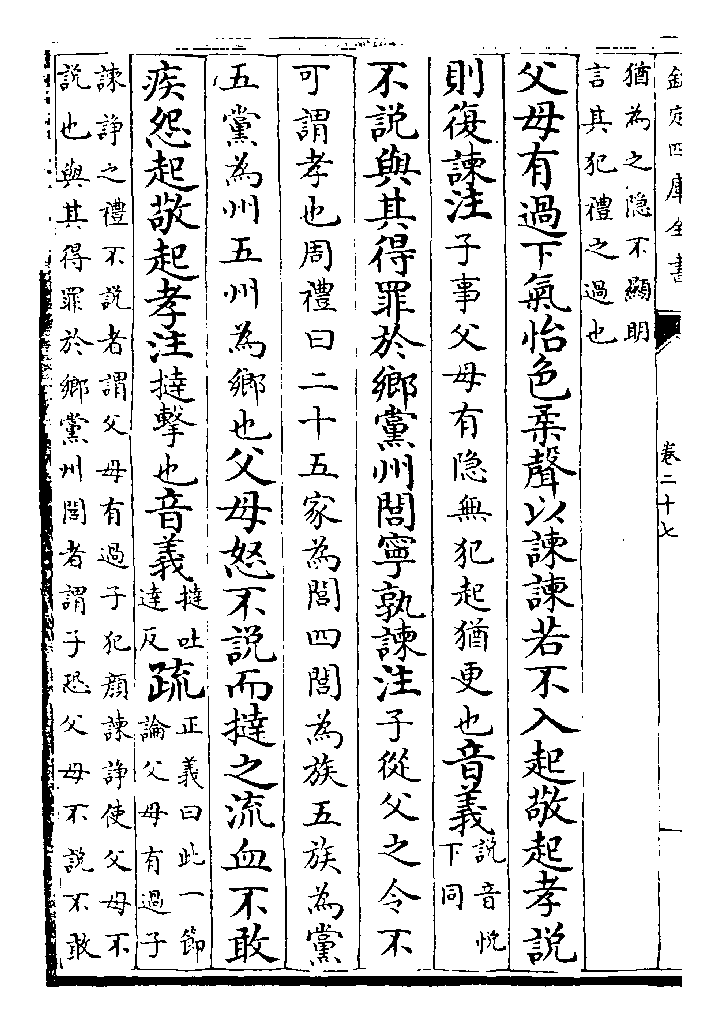 欽定四庫全書
卷二十七
猶為之隐不顯明
言其犯禮之過也
父母有過下氣怡色柔聲以諫諫若不入起敬起孝説
則復諫注子事父母有隐無犯起猶更也音義説音悅
下同
不説與其得罪於鄉黨州閭寧孰諫注子從父之令不
可謂孝也周禮曰二十五家為閭四閭為族五族為黨
五黨為州五州為鄉也父母怒不説而撻之流血不敢
疾怨起敬起孝注撻擊也音義撻吐
達反疏正義曰此一節
論父母有過子
諫諍之禮不説者謂父母有過子犯顔諫諍使父母不
説也與其得罪於鄉黨州閭者謂子恐父母不説不敢